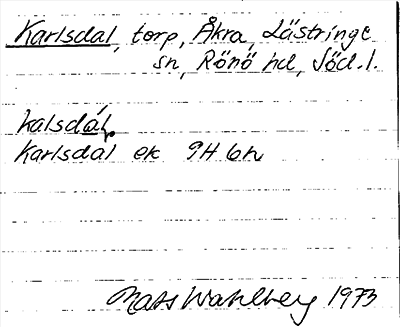 Karlsdal, torp, Åkra, Lästringe
sn, Rönö hd, Södl.
kalsdál,
Karlsdal ek 9H 6h
Mats Wahlberg 1973